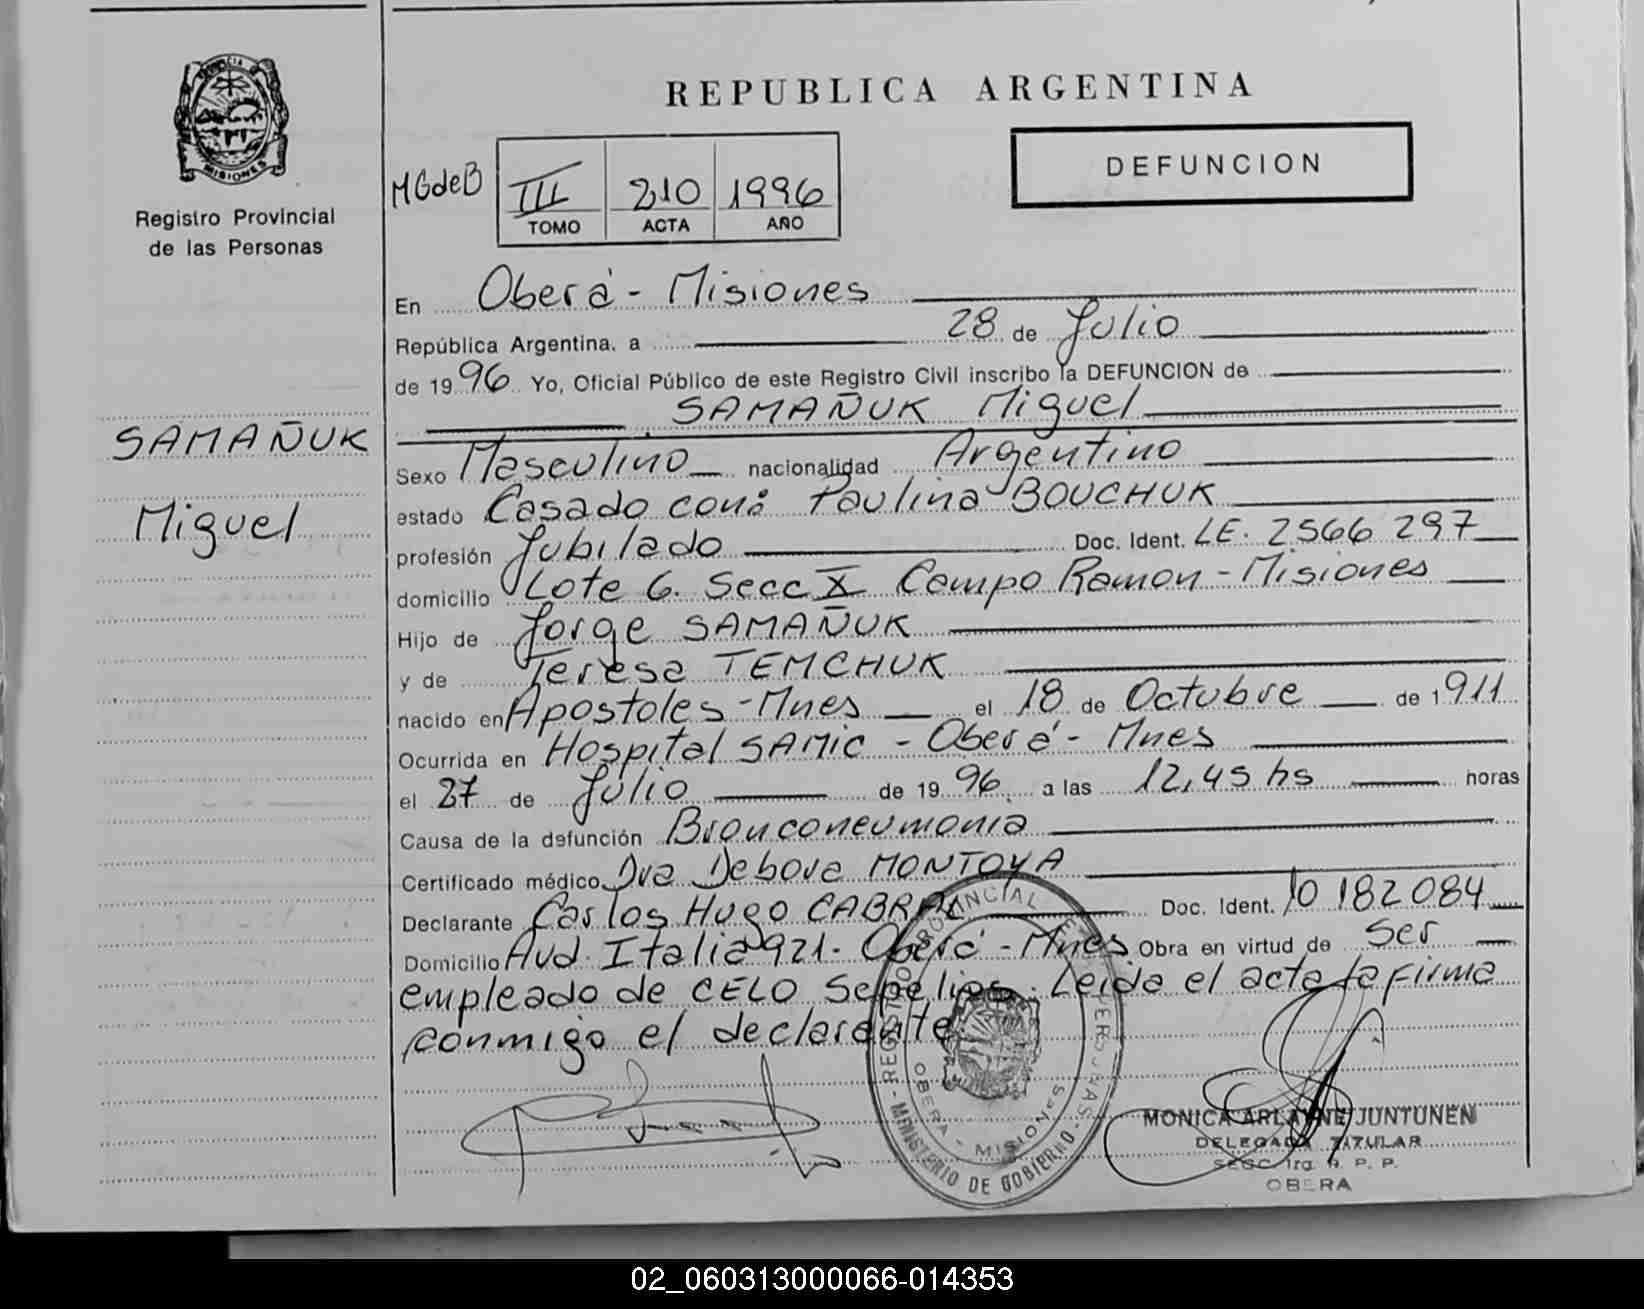 REPUBLICA ARGENTINA
PROVINCIA DE
MISIONES
Registro Provincial
de las Personas
MGdeB III 210 1996
TOMO ACTA AÑO
DEFUNCION
SAMAÑUK
Miguel
En Oberá - Misiones
República Argentina, a 28 de Julio
de 1996 Yo, Oficial Público de este Registro Civil inscribo la DEFUNCION de
SAMAÑUK Miguel
Sexo Masculino nacionalidad Argentino
estado Casado con: Paulina BOUCHUK
profesión Jubilado Doc. Ident. LE. 2566 297
domicilio Lote 6. Secc X Campo Ramon - Misiones
Hijo de Jorge SAMAÑUK
y de Teresa TEMCHUK
nacido en Apostoles - Mnes el 18 de Octubre de 1911
Ocurrida en Hospital SAMIC - Oberá - Mnes
el 27 de Julio de 1996 a las 12,45 hs horas
Causa de la defunción Bronconeumonia
Certificado médico Dra Debora MONTOYA
Declarante Carlos Hugo CABRAL Doc. Ident. 10 182 084
Domicilio Avd. Italia 921 - Oberá - Mnes Obra en virtud de Ser
empleado de CELO Sepelios. Leida el acta la firma
conmigo el declarante
REGISTRO PROVINCIAL DE LAS PERSONAS - MINISTERIO DE GOBIERNO -
OBERA - MISIONES
MONICA ARLAYNE JUNTUNEN
DELEGADA TITULAR
SECC 1ra R. P. P.
OBERA
02_060313000066-014353